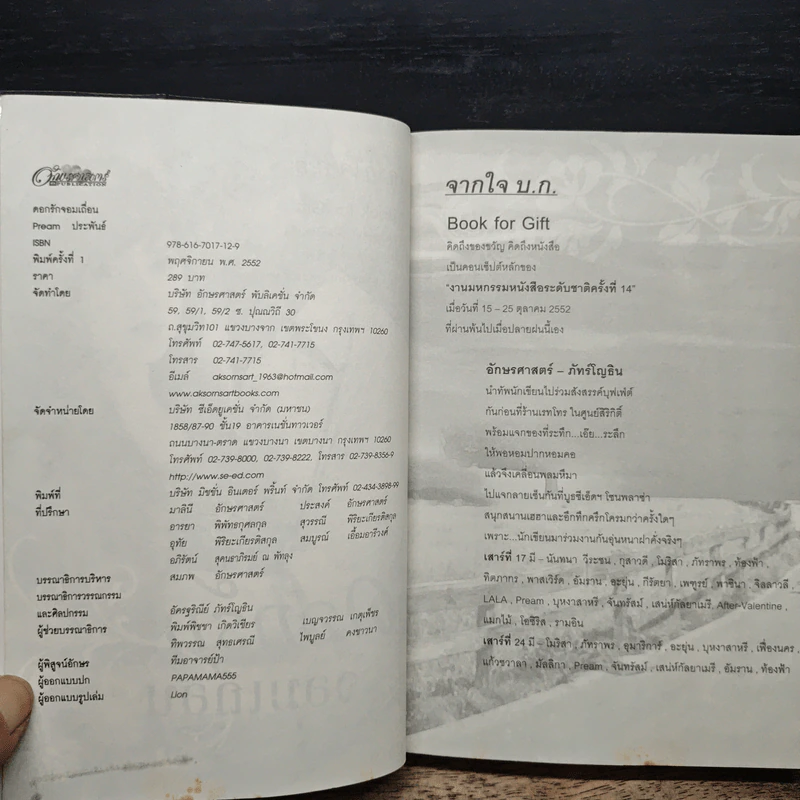 ดอกรักจอมเถื่อน
Pream ประพันธ์
ISBN 978-616-7017-12-9
พิมพ์ครั้งที่ 1 พฤศจิกายน พ.ศ. 2552
ราคา 289 บาท
จัดทำโดย บริษัท อักษรศาสตร์ พับลิเคชั่น จำกัด
59, 59/1, 59/2 ซ. ปุณณวิถี 30
ถ.สุขุมวิท101 แขวงบางจาก เขตพระโขนง กรุงเทพฯ 10260
โทรศัพท์ 02-747-5617, 02-741-7715
โทรสาร 02-741-7715
อีเมล์ aksornsart_1963@hotmail.com
www.aksornsartbooks.com
จัดจำหน่ายโดย บริษัท ซีเอ็ดยูเคชั่น จำกัด (มหาชน)
1858/87-90 ชั้น19 อาคารเนชั่นทาวเวอร์
ถนนบางนา-ตราด แขวงบางนา เขตบางนา กรุงเทพฯ 10260
โทรศัพท์ 02-739-8000, 02-739-8222, โทรสาร 02-739-8356-9
http://www.se-ed.com
พิมพ์ที่ บริษัท มิชชั่น อินเตอร์ พริ้นท์ จำกัด โทรศัพท์ 02-434-3898-99
ที่ปรึกษา มาลินี อักษรศาสตร์ ประสงค์ อักษรศาสตร์
อารยา พิพัทธกุศลกุล สุวรรณี พิริยะเกียรติสกุล
อุทัย พิริยะเกียรติสกุล สมบูรณ์ เอื้อมอารีวงศ์
อภิรัตน์ สุคนธาภิรมย์ ณ พัทลุง
บรรณาธิการบริหาร สมภพ อักษรศาสตร์
บรรณาธิการวรรณกรรม
และศิลปกรรม อัครจุรีณีย์ ภัทร์โญอิน
ผู้ช่วยบรรณาธิการ พิมพ์พิชชา เกิดวิเชียร เบญจวรรณ เกตุเพ็ชร
ทิพวรรณ สุทธเศรณี ไพบูลย์ คงชาวนา
ผู้พิสูจน์อักษร ทีมอาจารย์ป้า
ผู้ออกแบบปก PAPAMAMA555
ผู้ออกแบบรูปเล่ม Lion
จากใจ บ.ก.
Book for Gift
คิดถึงของขวัญ คิดถึงหนังสือ
เป็นคอนเซ็ปต์หลักของ
"งานมหกรรมหนังสือระดับชาติครั้งที่ 14"
เมื่อวันที่ 15 – 25 ตุลาคม 2552
ที่ผ่านพ้นไปเมื่อปลายฝนนี้เอง
อักษรศาสตร์ – ภัทร์โญอิน
นำทัพนักเขียนไปร่วมสังสรรค์บุฟเฟ่ต์
กันก่อนที่ร้านเรทโทร ในศูนย์สิริกิติ์
พร้อมแจกของที่ระทึก...เอ๊ย...ระลึก
ให้พอหอมปากหอมคอ
แล้วจึงเคลื่อนพลมหึมา
ไปแจกลายเซ็นกันที่บูธซีเอ็ดฯ โซนพลาซ่า
สนุกสนานเฮฮาและอึกทึกครึกโครมกว่าครั้งใดๆ
เพราะ...นักเขียนมาร่วมงานกันอุ่นหนาฝาคั่งจริงๆ
เสาร์ที่ 17 มี – นันทนา วีระชน , กุสาวดี , โมริสา , ภัทราพร , ท้องฟ้า ,
ทิตภากร , พาสเวิร์ด , อัมราน , อะยุ่น , กีรัตยา , เพฑูรย์ , พาซินา , จิลลาวดี ,
LALA , Pream , บุหงาสาหรี , จันทร์สม , เสน่ห์กัลยาเมรี , After-Valentine ,
แมกไม้ , โอซีริส , รามอิน
เสาร์ที่ 24 มี – โมริสา , ภัทราพร , อุมาริการ์ , อะยุ่น , บุหงาสาหรี , เฟื่องนคร ,
แก้วชวาลา , มัลลิกา , Pream , จันทร์สม , เสน่ห์กัลยาเมรี , อัมราน , ท้องฟ้า